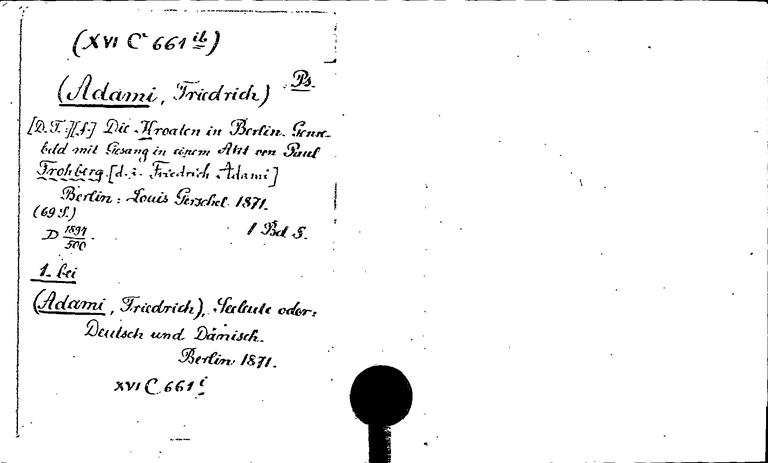 (XVI C 661 ib)
(Adami, Friedrich) Ps.
[D.T.:][s.] Die Kroaten in Berlin. Genre-
bild mit Gesang in einem Akt von Paul
Frohberg [d.i. Friedrich Adami]
Berlin: Louis Gerschel 1871.
(69 S.)
D 1894/500. 1 Bd 8.
1. bei
(Adami, Friedrich), Seeleute oder:
Deutsch und Dänisch.
Berlin 1871.
XVI C 661 i